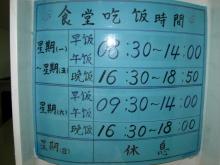 食堂吃饭時間
星期(一)~星期(五)
早饭 午饭 08:30~14:00
晚饭 16:30~18:50
星期(六)
早饭 午饭 09:30~14:00
晚饭 16:30~18:00
星期(日) 休息